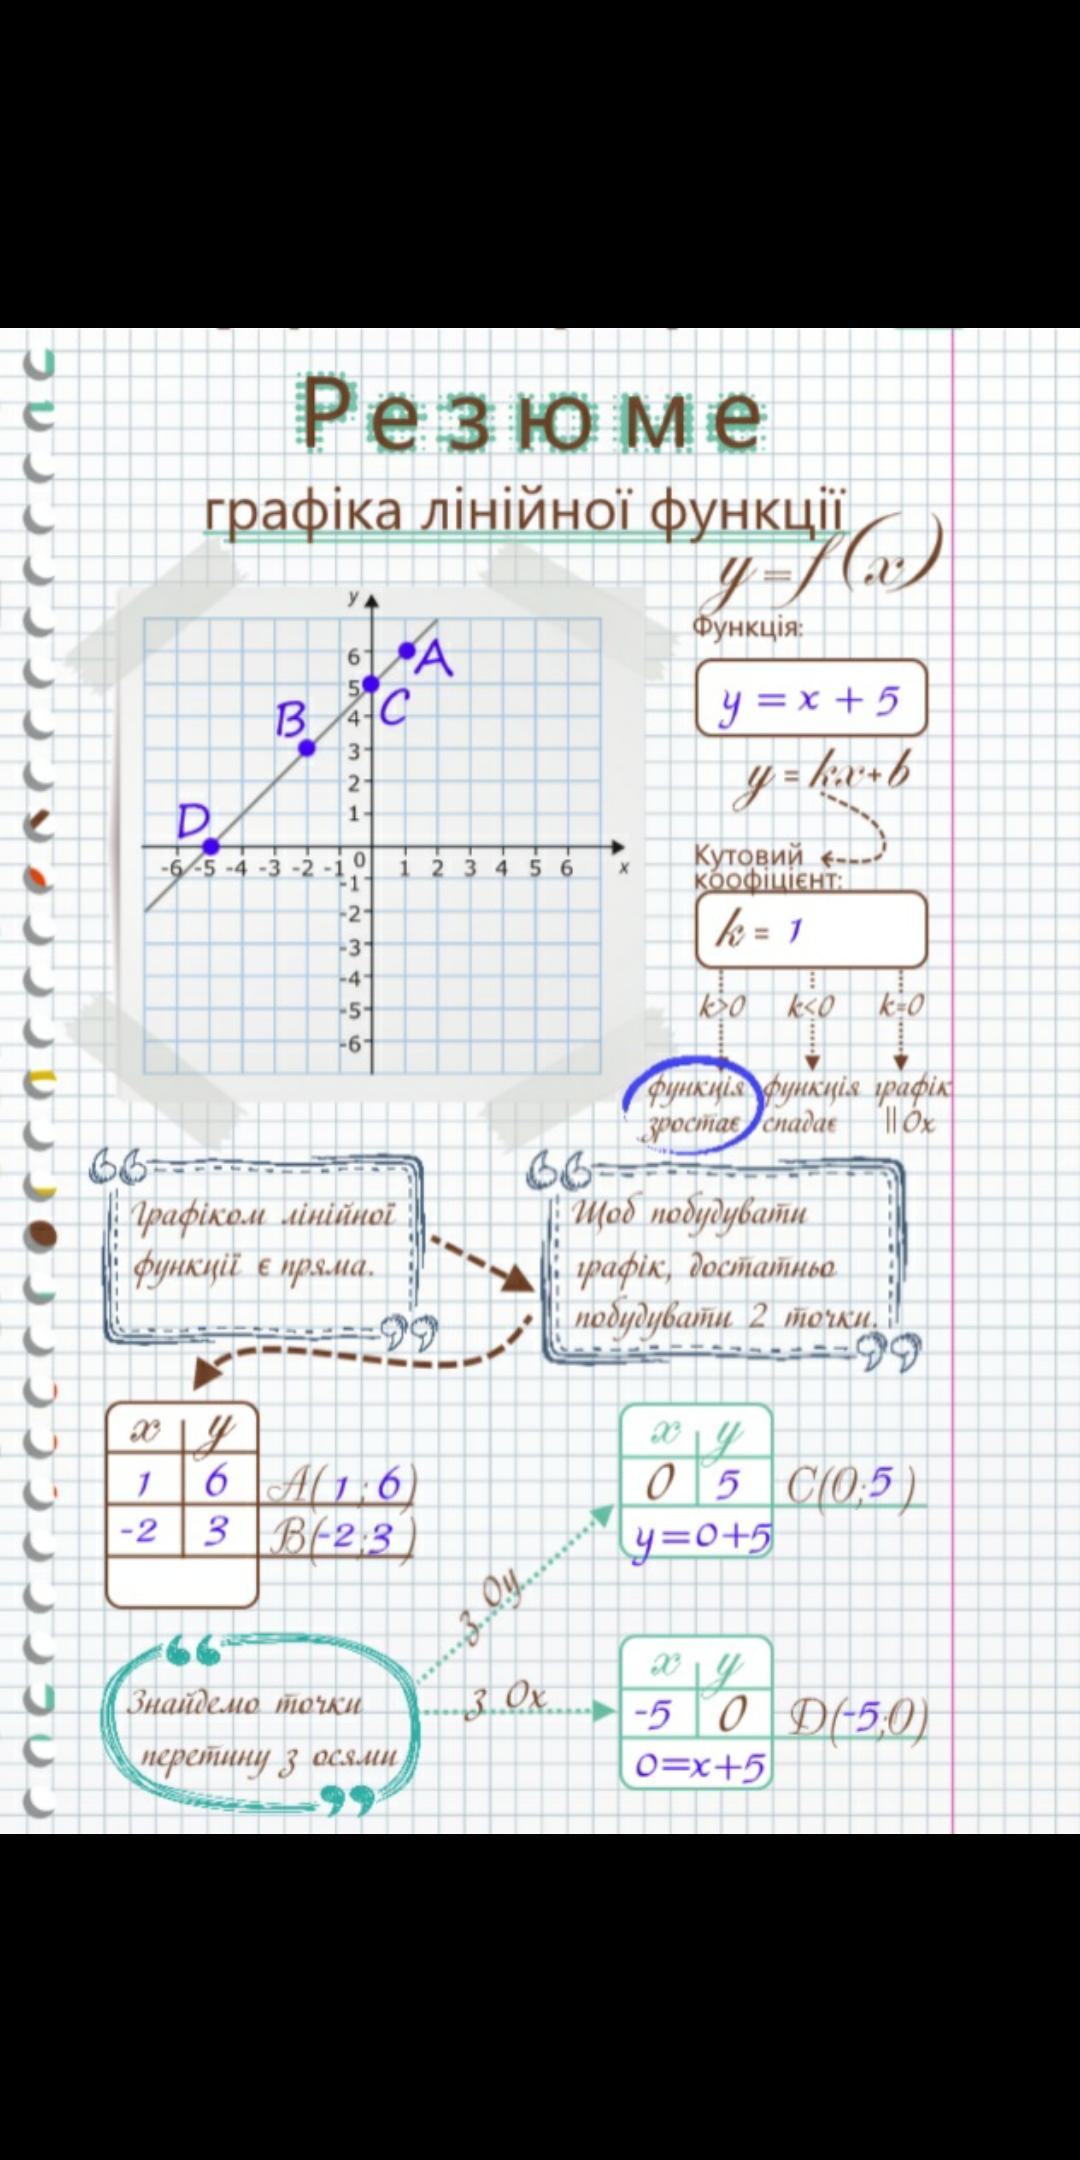 Резюме
графіка лінійної функції
y=f(x)
Функція:
y = x + 5
y = kx+b
Кутовий
коофіцієнт:
k = 1
k>0 k<0 k=0
функція функція графік
зростає спадає ||Ox
y
6
5
4
3
2
1
A
C
B
D
-6 -5 -4 -3 -2 -1 0 1 2 3 4 5 6 x
-1
-2
-3
-4
-5
-6
Графіком лінійної
функції є пряма.
Щоб побудувати
графік, достатньо
побудувати 2 точки.
x y
1 6 A(1;6)
-2 3 B(-2;3)
x y
0 5 C(0;5)
y=0+5
з Oy
Знайдемо точки
перетину з осями
з Ox
x y
-5 0 D(-5;0)
0=x+5